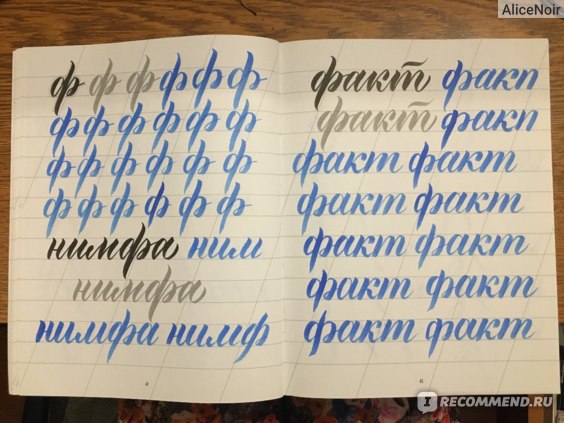 AliceNoir
ф ф ф ф ф ф
ф ф ф ф ф ф
ф ф ф ф ф ф
ф ф ф ф ф ф
нимфа ним
нимфа
нимфа нимф
факт факп
факт факп
факт факт
факт факт
факт факт
факт факт
факт факт
I RECOMMEND.RU